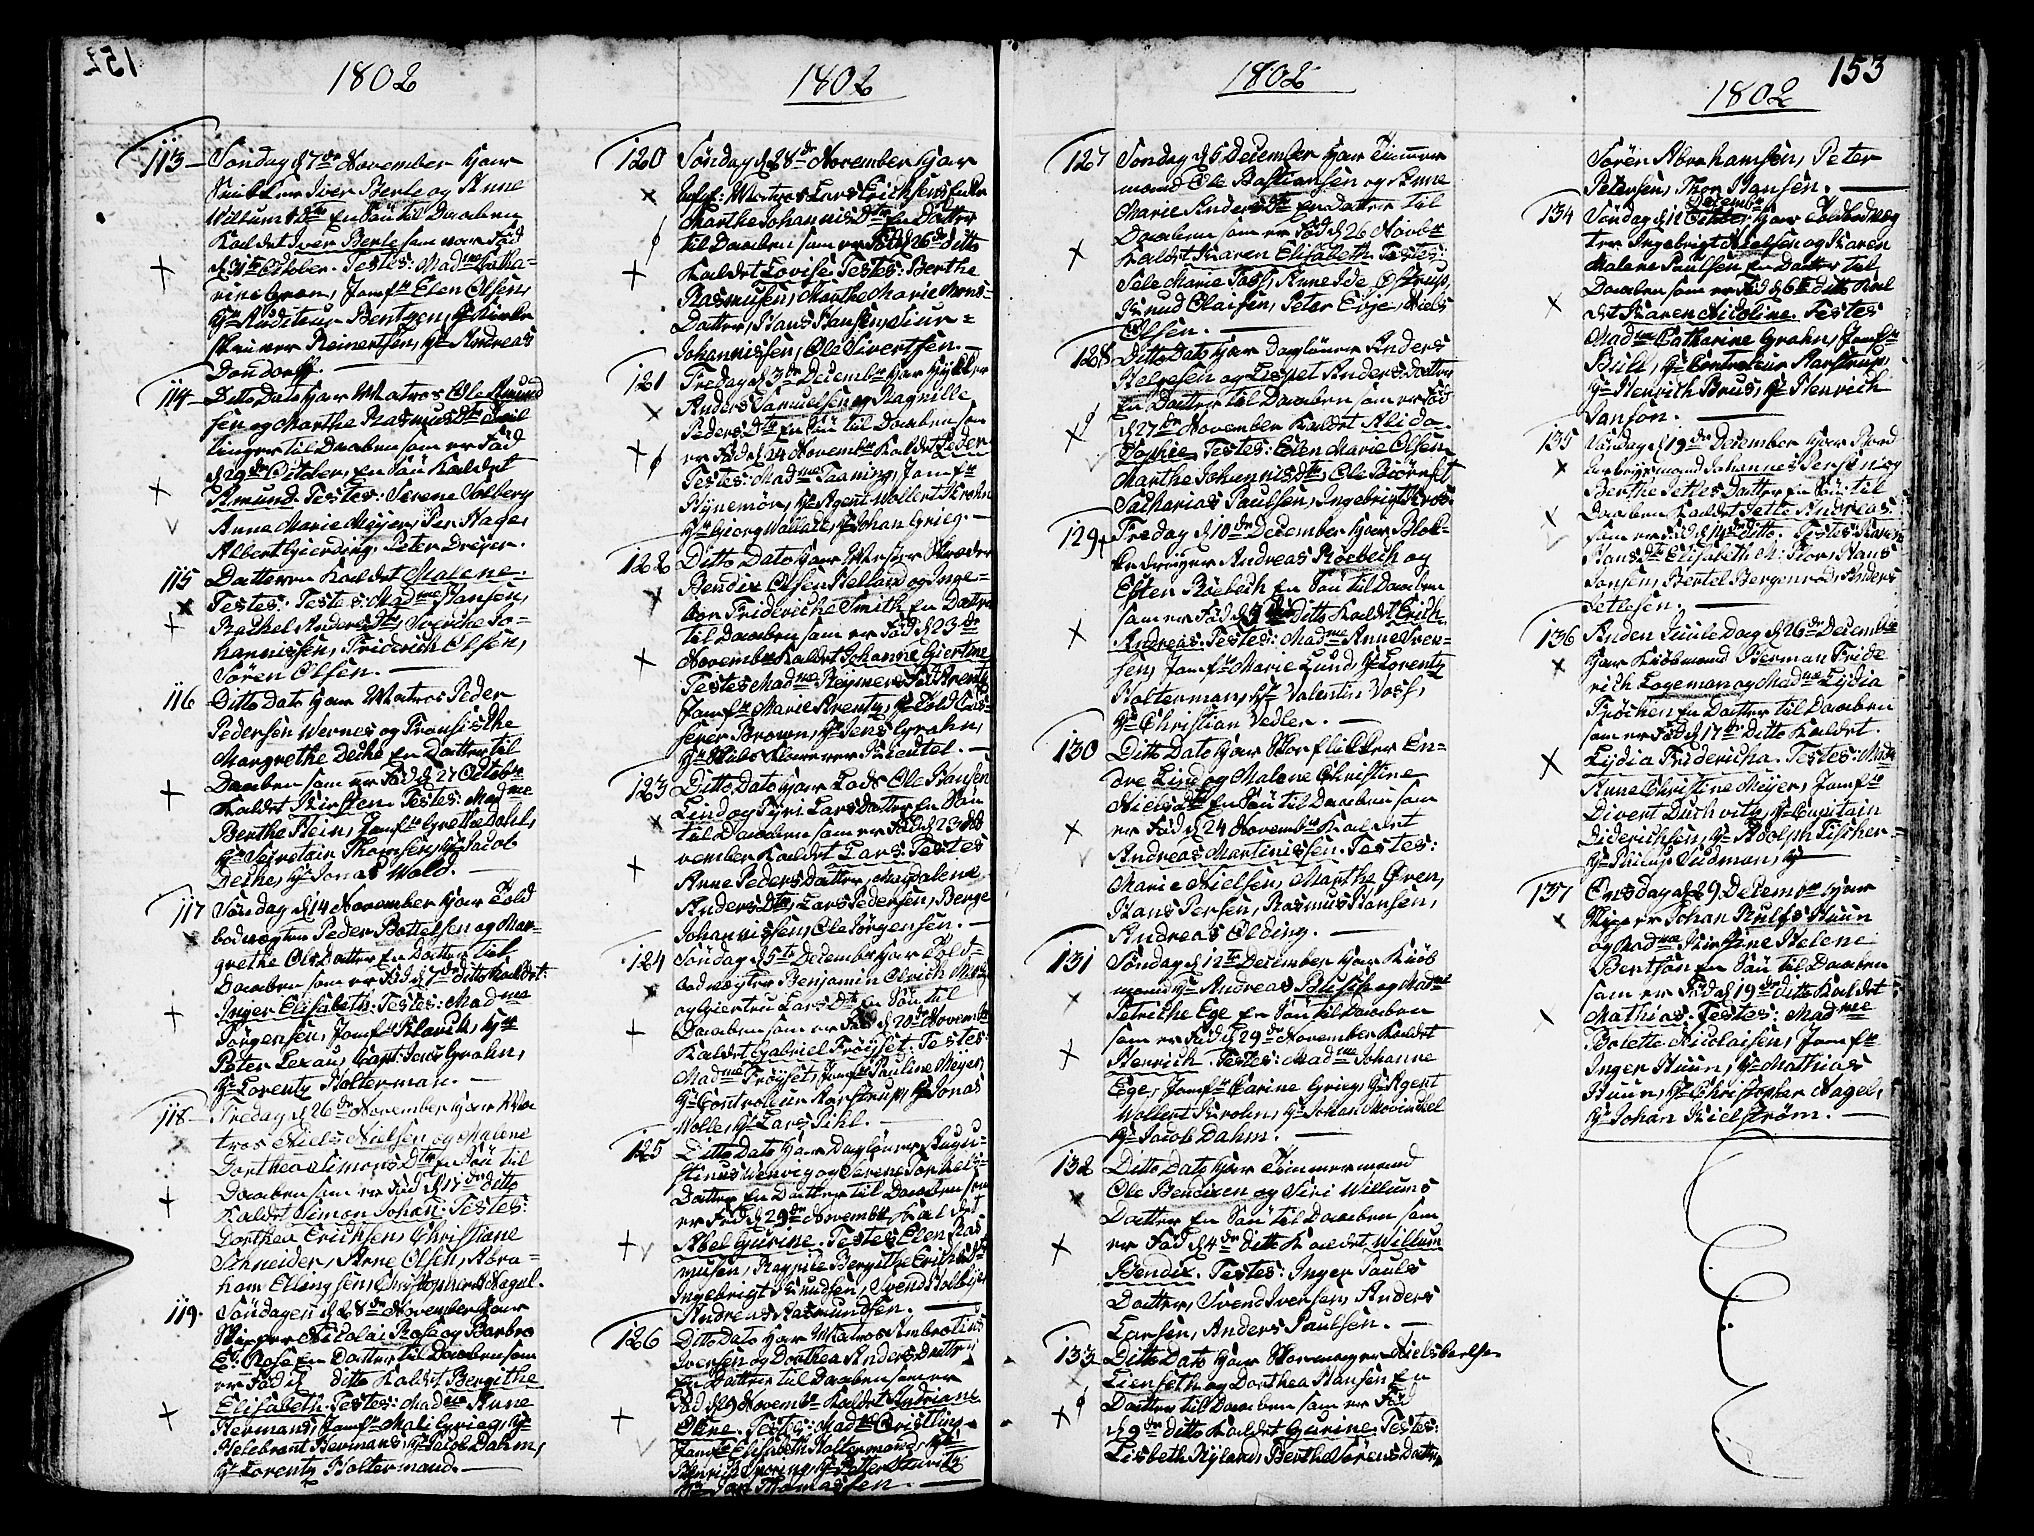 152
1802
113 Söndag d 7de November haver
Snidker Iver Berle og Anne
Willumsdtr En Sön til Daaben
Kaldet Iver Berle som var Föd
d 31te October. Testes: Madme Catha-
rine Gran, Jomfr Elen Olsen,
Hr Auditeur Bentzen, Hr
Reinertsen, Hr Andreas
Dondorff.
114 Ditto Dato haver Matros Ole Amund
sen og Marthe Rasmusdtr Tvil
linger til Daaben som er Föd
d 29de October, En Sön Kaldet
Amund. Testes: Serene Solberg
Anne Marie Meyer, Per Hage,
Albert Gierding, Peter Dreyer.
115 Datteren Kaldet Malene.
Testes: Testes: Madme Hansen,
Rachel Andersdtr, Sverche Jo-
hannissen, Friderich Olsen,
Sören Olsen.
116 Ditto Dato haver Matros Peder
Pedersen Wernes og Fransische
Margrethe Deche En Datter til
Daaben som er Föd d 27 Octobr
Kaldet Kirsten Testes: Madme
Berthe Stein, Jomfr Grethe Dahl,
Hr Secretair Thomsen, Hr Jacob
Deche, Hr Jonas Wold.
117 Söndag d 14 November haver Told
bodvægter Peder Bottelsen og Mar-
grethe Olsdatter En Datter til
Daaben som er Föd d 7de ditto Kaldet
Inger Elisabeth. Testes: Madme
Jörgensen, Jomfr Klauch, Hr
Peter Lexau, Capt: Jens Grahn,
Hr Lorentz Holterman.
118 Fredag d 26de November haver Ma
tros Niels Nielsen og Malene
Dorthea Simonsdtr En Sön til
Daaben som er Föd d 17de ditto
Kaldet Simon Johan. Testes:
Dorthea Erichsen, Christiane
Schneider, Arne Olsen, Abra-
ham Ellingsen, Christopher Nagel.
119. Söndagen d 28de November haver
Skipper Nicolai Rose og Barbro
E: Rose En Datter til Daaben som
er Föd d ditto Kaldet Bergithe
Elisabeth. Testes: Madme Anne
Hermans, Jomfr Mali Grieg, Hr
Helebrant Hermans, Hr Jacob Dahm,
Hr Lorentz Holtermand.
1802
120 Söndag d 28de November haver
Matros Lars Erichsens Enke
Marthe Johannisdtr En Datter
til Daaben som er Föd d 26de ditto
Kaldet Lovise Testes: Berthe
Rasmusen, Marthe Marie Mons-
Datter, Hans Hansen, Siur-
Johannissen, Ole Sivertsen.
121 Fredag d 3de Decembr haver Hykler
Anders Samuelsen og Ragnille
Pedersdtr En Sön til Daaben som
er Föd d 24 Novembr Kaldet Peder
Testes: Madme Taaning, Jomfr
Hynemör, Hr Agent Wollert Krohn
Hr Georg Wallace, Hr Johan Grieg.
122 Ditto Dato haver Mester Skræder
Bendix Olsen Hellan og Inge-
bor Friderichе Smith En Datter
til Daaben som er Föd d 23de
Novembr Kaldet Johanne Giertine
Testes Madme Reymers Föd Krentz
Jomfr Marie Krentz, Hr Told Cas-
serer Brown, Hr Jens Grahn,
Hr Klouman.
123 Ditto Dato haver Lods Ole Hansen
Lind og Tyri Larsdatter En Sön
til Daaben som er Föd d 23 No
vember Kaldet Lars Testes
Anne Pedersdatter, Magdalene
Andersdtr, Lars Pedersen, Berge
Johannissen, Ole Jörgensen.
124 Söndag d 5te December haver Told-
bodvægter Benjamin Olrich
og Giertru Larsdtr En Sön til
Daaben som er Föd d 20de Novembr
Kaldet Gabriel Fröyset. Testes:
Madme Fröyset, Jomfr Pauline Meyer,
Hr Controleur Karstrup, Hr Jonas
Wolle, Hr Lars Pihl.
125 Ditto Dato haver Daglöner Augu-
stinus Wenvig og Serene Torkels-
Datter En Datter til Daaben som
er Föd d 29de Novembr Kaldet
Abel Gurine. Testes Elen Ras
musen, Ragnile Bergithe Erichsdtr
Ingebrigt Knudsen, Svend
Andreas Rasmundsen.
126 Ditto Dato haver Matros Ambrosius
Iversen og Dorthea Andersdatter
En Datter til Daaben som er
Föd d 9 Novembr Kaldet Andriane
Oline. Testes: Madme Cristling
Jomfr Elisabeth Holtermand, Hr
Henrich Sporing, Hr Petter
Hr Jan Thomassen.
1802
127 Söndag d 5 December haver Timmer
mand Ole Bastiansen og Anne
Marie Andersdtr En Datter til
Daaben som er Föd d 26 Novbr
Kaldet Karen Elisabeth. Testes
Sele Marie Foss, Anne Ide Ostrup,
Knud Olaisen, Peter Eye, Niels
Olsen.
128 Ditto Dato haver Daglöner Anders
Helgesen og Lispet Andersdatter
En Datter til Daaben som er Föd
d 27de November Kaldet Alida
Sophie. Testes: Elen Marie Olsen
Marthe Johannisdtr, Ole Böörset
Sacharias Paulsen, Ingebrigt
129 Fredag d 10de December haver Blok-
kedreyer Andreas Röebech og
Esten Röebech En Sön til Daaben
som er Föd d ditto Kaldet Erich
Andreas. Testes: Madme Anne Iver-
sen, Jomfr Marie Lund, Hr Lorentz
Holterman, Hr Valentin Voss,
Hr Christian Vedler.
130 Ditto Dato haver Skoflikker En-
dre Lind og Malene Christine
Nielsdtr En Sön til Daaben som
er Föd d 24 Novembr Kaldet
Andreas Martinissen. Testes:
Marie Nielsen, Marthe Ören,
Hans Persen, Rasmus Hansen,
Andreas Olding.
131 Söndag d 12te December haver Kiöb
mand Hr Andreas og Madme
Petriche Ege En Sön til Daaben
som er Föd d 29de November Kaldet
Henrich. Testes: Madme Johanne
Ege, Jomfr Carine Grieg, Hr Agent
Wollert Krohn, Hr Johan Mowinckel
Hr Jacob Dahm.
132 Ditto Dato haver Timmermand
Ole Bendixen og Siri Willums
Datter En Sön til Daaben som
er Föd d 4de ditto Kaldet Willum
Bendix. Testes: Inger Pauls
Datter, Svend Iversen, Anders
Larsen, Anders Paulsen.
133 Ditto Dato haver Skomager Niels
Lienseth og Dorthea Hansen En
Datter til Daaben som er Föd
d 9de ditto Kaldet Gurine. Testes:
Lisbeth Nyland, Berthe Sörensdatter,
153
1802
Sören Abrahamsen, Peter
Petersen, Thor Hansen.
134 Söndag d 12 Decembr haver Toldbodvæg
ter Ingebrigt Nielsen og Karen
Malene Paulsen En Datter til
Daaben som er Föd d 6te ditto Kal
det Karen Nicoline. Testes
Madme Catharine Grahn, Jomfr
Bull, Hr Controleur Karstrup,
Hr Henrich Brus, Hr Henrich
Janson.
135 Söndag d 19de December haver
Johannes Persen og
Berthe Jetlesdatter En Sön til
Daaben Kaldet Jetle Andreas.
som er Föd d 14de ditto. Testes Karen
Hansdtr Elisabeth M: Thor, Hans
Jansen, Bertel Bergenrod, Anders
Jetlesen.
136 Anden Juule Dag d 26de Decembr
haver Kiöbmand Herman Fride
rich Logeman og Madme Lydia
Kröchen En Datter til Daaben
som er Föd d 17de Ditto Kaldet.
Lydia Fridericha. Testes: Madme
Anne Christine Meyer, Jomfr
Divert Duchvith, Hr Capitain
Diderichsen, Hr Adolph Fischer.
Hr Philip Sudman, Hr
137 Onsdag d 29 Decembr haver
Skipper Johan Huun
og Madme Kirstine Helene
Bentson En Sön til Daaben
som er Föd d 19de ditto Kaldet
Mathias. Testes: Madme
Bolette Nicolaisen, Jomfr
Inger Huun, Hr Mathias
Huun, Hr Christopher Nagel,
Hr Johan Kielström.